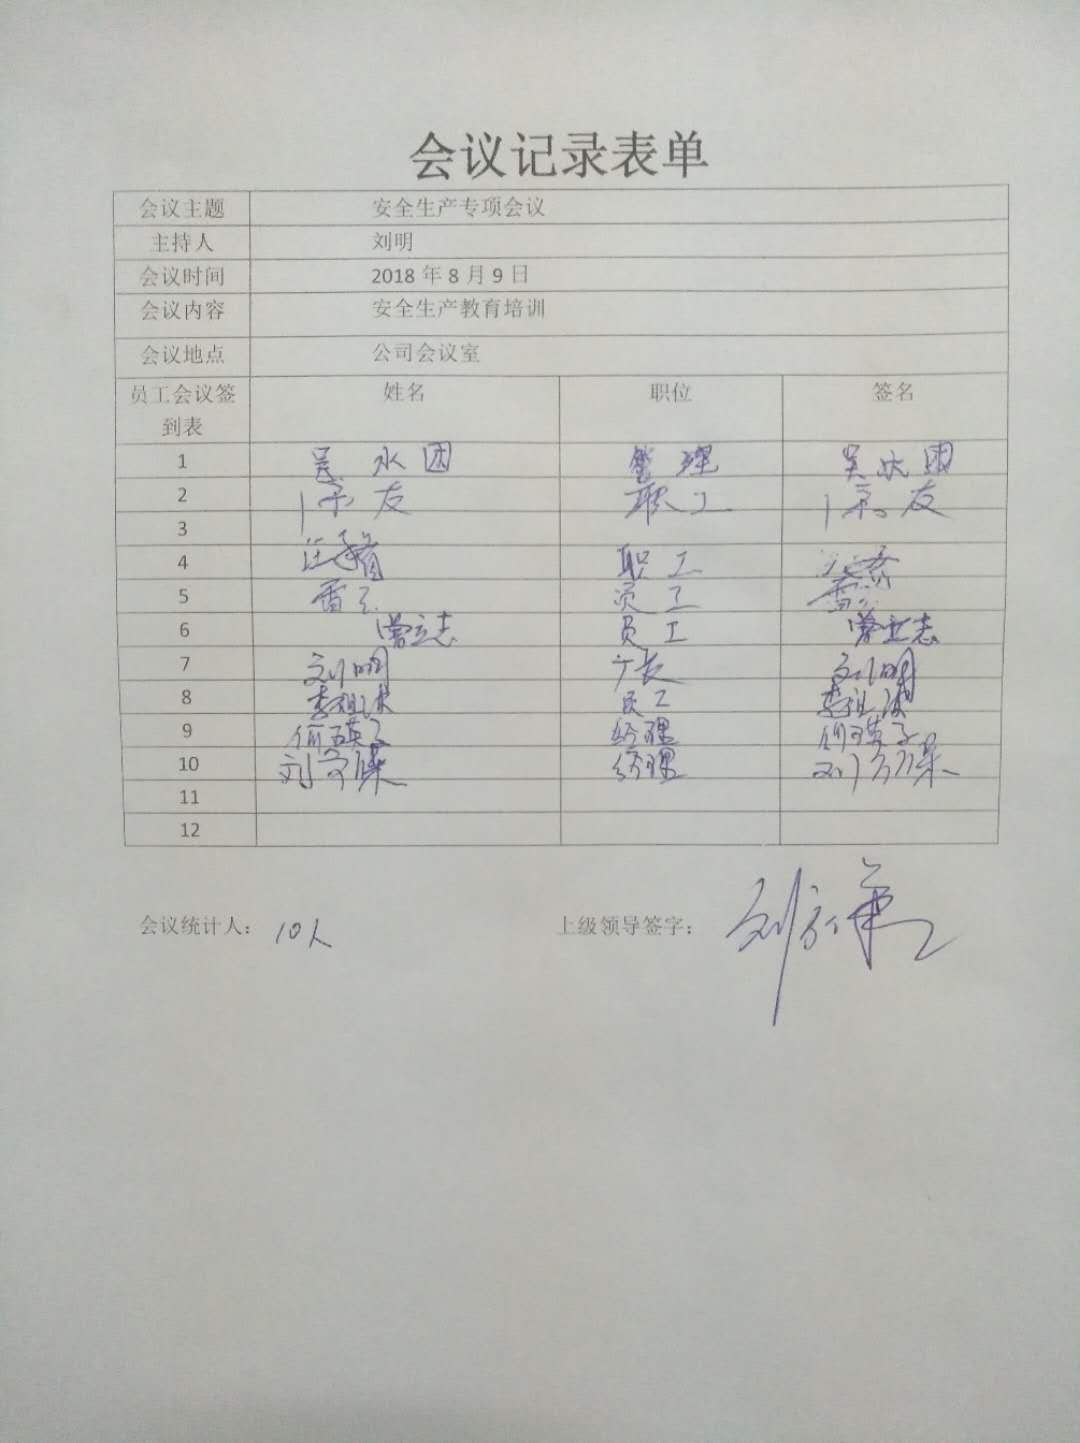 会议记录表单
会议主题 安全生产专项会议
主持人 刘明
会议时间 2018 年 8 月 9 日
会议内容 安全生产教育培训
会议地点 公司会议室
员工会议签到表 姓名 职位 签名
1 吴水团 管理 吴水团
2 友 职工 友
3
4 职工
5 雷 员工
6 曾立志 员工 曾立志
7 刘明 厂长 刘明
8 李祖 员工 李祖
9 经理
10 刘 经理 刘
11
12
会议统计人： 10人 上级领导签字： 刘